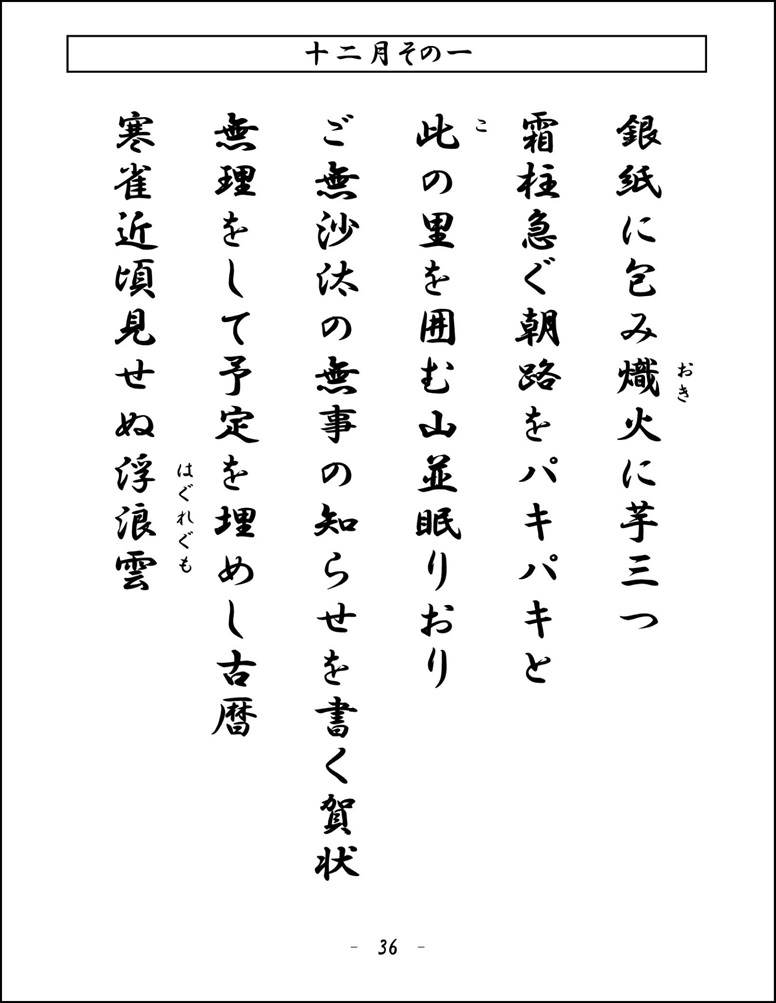 十二月その一
銀紙に包み熾火に芋三つ
おき
霜柱急ぐ朝路をパキパキと
此の里を囲む山並眠りおり
こ
ご無沙汰の無事の知らせを書く賀状
無理をして予定を埋めし古暦
寒雀近頃見せぬ浮浪雲
はぐれぐも
- 36 -